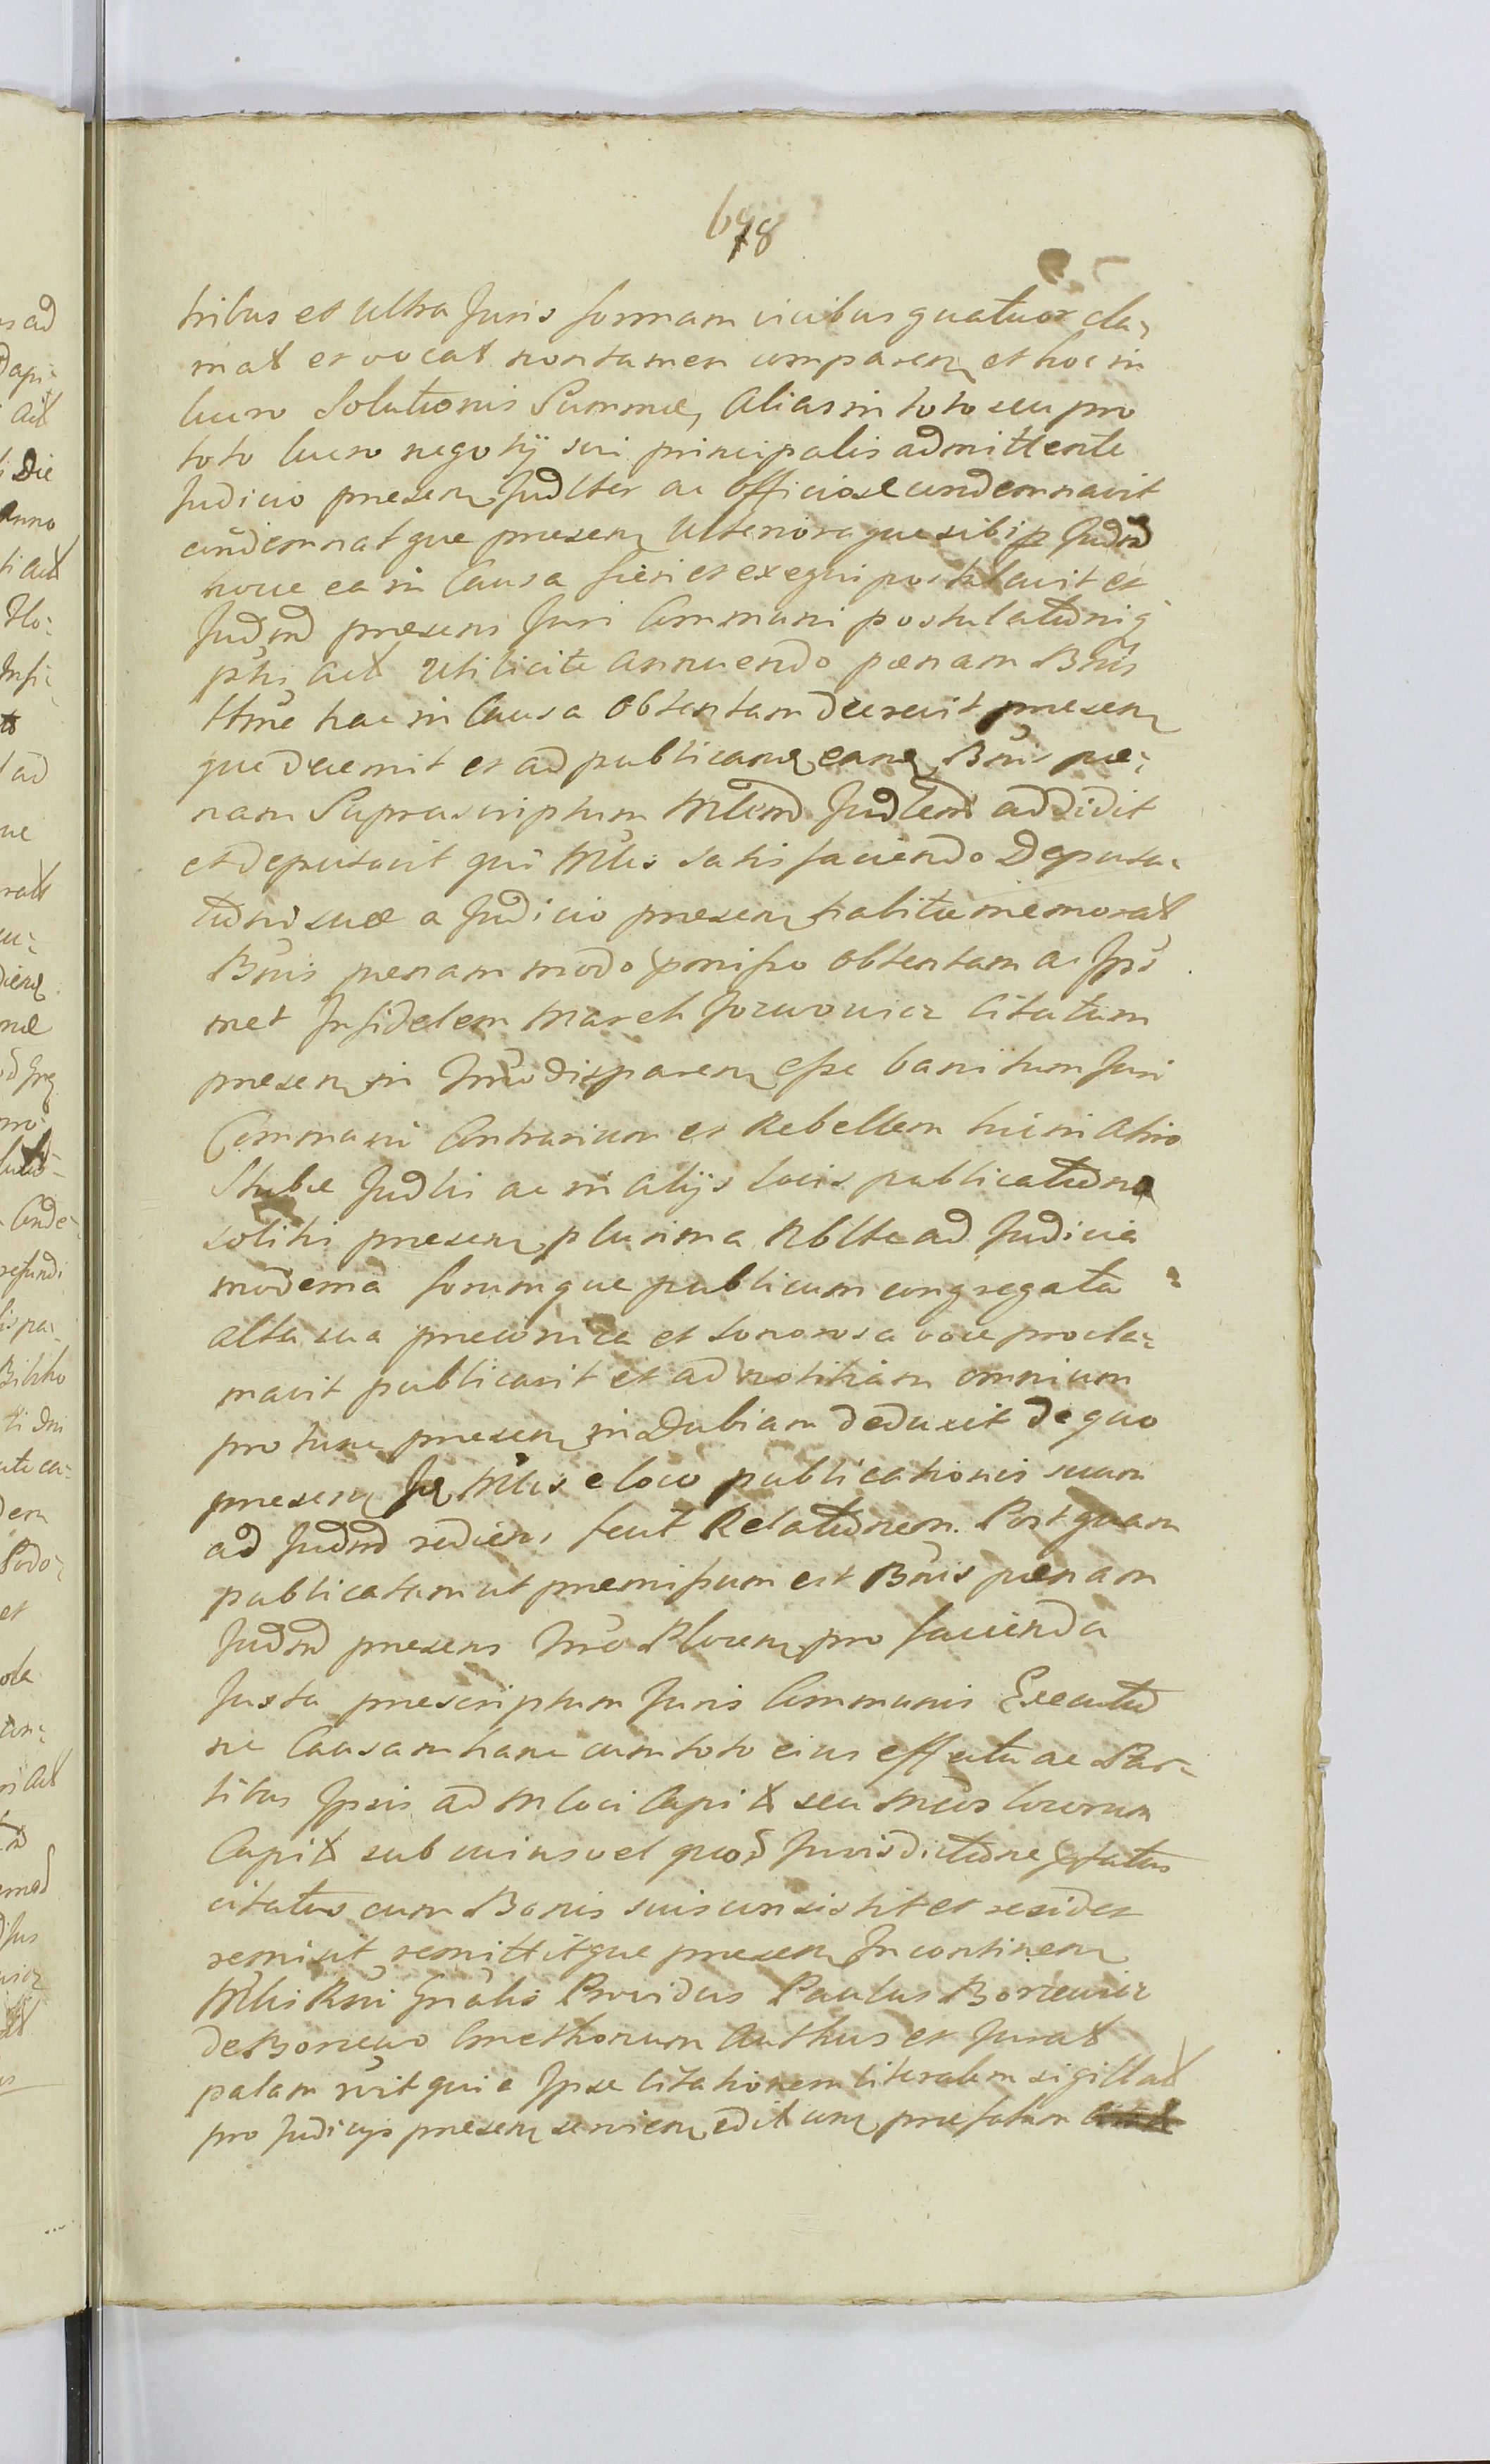 678
tribus et ultra Juris formam vicibus quatuor cla-
mat et vocat non tamen comparen et hoc in
lucro Solutionis Summæ, alias in toto seu pro
toto lucro negotÿ sui principalis admittente
Judicio presen Judlter ac officiose condemnavit
condemnatque presen Ulterioraque sibi p Judm
hocce ea in Causa fieri et exequi postulavit et
Judm præsens Juri Communi postulatdniq
phi act uti licite annuendo pænam Bnis
ttme hac in Causa obtentam decrevit presen
que decernit et ad publicand eand Bnis pæ-
nam Suprascriptum Mlem Judlem addidit
et deputavit qui Mlis satisfaciendo Deputa-
tdni suæ a Judicio presen habitæ memorat
Bnis pænam modo pmisso obtentam ac Ips
met Infidelem March citatum
presen in Tmo disparen esse banitum Juri
Communi Contrarium et Rebellem hic in Atrio
Stubæ Judlis ac in alijs locis publicatdna
solitis presen plurima Nbltte ad Judicia
moderna forumque publicum congregata
alta sua preconica et sonorosa voce procla-
mavit publicavit et ad notitiam omnium
pro tunc presen in Dubiam deduxit de quo
presen Je Mlis e loco publicationis suam
ad Judm rediens fecit Relatdnem. Postquam
publicatam ut premissum est Bnis pænam
Judm presens Tmo Plocen pro facienda
Juxta præscriptum Juris Communis Executd
ne Causam hanc cum toto eius effectu ac Par-
tibus Ipsis ad M loci Capit seu Mcos locorum
Capit sub cuius vel quod Jurisdictdne pfatus
citatus cum Bonis suis consistit et residet
remisit remittitque presen In continen
Mlis Rni Gnalis Providus Paulus Borzewicz
de Borzewo Cmethonum Authus et Jurat
palam rvit quia Ipse Citationem literalem sigillat
pro Judicijs presen servien edit cum præfatum